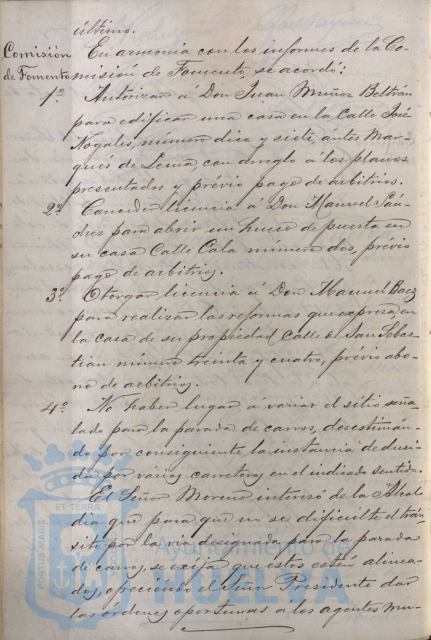 último.
Comisión de Fomento
En armonía con los informes de la Co-
misión de Fomento, se acordó:
1º Autorizar á Don Juan Muñoz Beltrán
para edificar una casa en la Calle José
Nogales, número diez y siete, antes Mar-
qués de Lema, con arreglo a los planos
presentados y prévio pago de arbitrios.
2º Conceder licencia á Don Manuel Sán-
chez para abrir un hueco de puerta en
su casa Calle Cala número dos, prévio
pago de arbitrios.
3º Otorgar licencia á Don Manuel Baez
para realizar las reformas que expresa, en
la casa de su propiedad Calle de San Sebas-
tian número treinta y cuatro, prévio abo-
no de arbitrios.
4º No haber lugar á variar el sitio seña-
lado para la parada de carros, desestiman-
do por consiguiente la instancia deduci-
da por varios carreteros en el indicado sentido.
El Señor Moreno interesó de la Alcal-
día que para que no se dificulte el trán-
sito por la vía designada para la parada
de carros, se exija que estos estén alinea-
dos, ofreciendo el Señor Presidente dar
las órdenes oportunas a los agentes mu-
Ayuntamiento de
HUELVA
PORTUS MARIS
ET TERRÆ